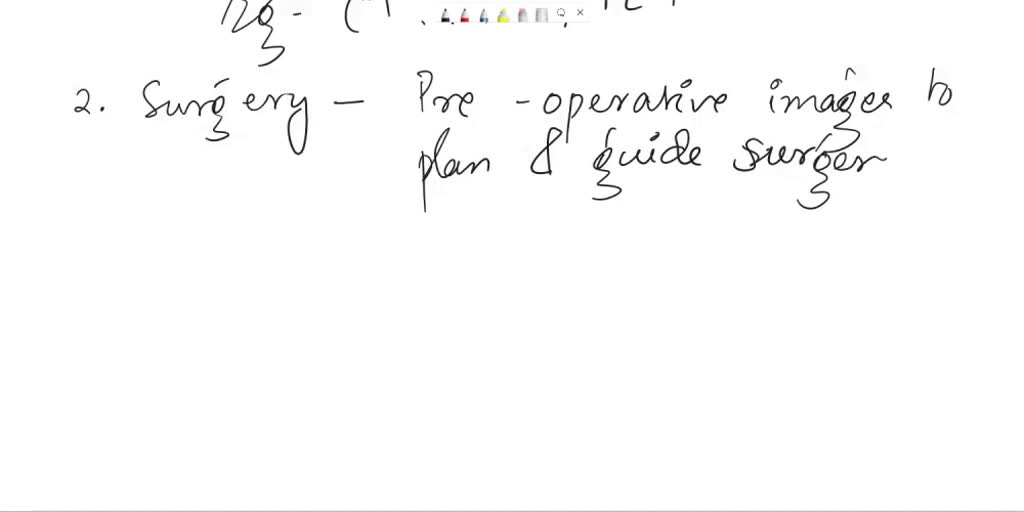 2. Surgery - Pre-operative images to
plan & guide surger